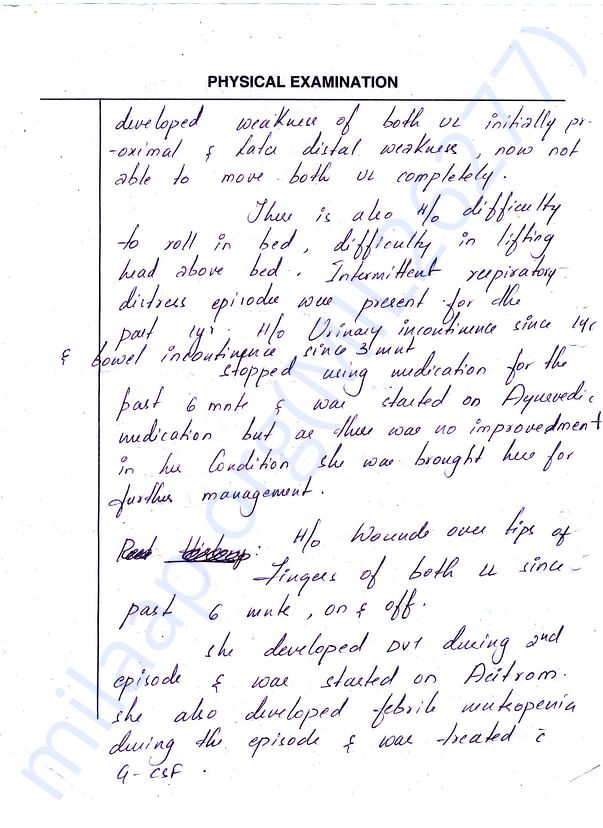 PHYSICAL EXAMINATION
developed weakness of both UL initially pr-
-oximal & later distal weakness, now not
able to move both UL completely.
There is also H/o difficulty
to roll in bed, difficulty in lifting
head above bed. Intermittent respiratory
distress episodes were present for the
past 1yr. H/o Urinary incontinence since 1yr
& bowel incontinence since 3 mnt
Stopped using medication for the
past 6 mnts & was started on Ayurvedic
medication but as there was no improvedment
in her Condition she was brought here for
further management.
Past history: H/o Wounds over tips of
Fingers of both UL since
past 6 mnts, on & off.
She developed DVT during 2nd
episode & was started on Acitrom.
She also developed febrile neutropenia
during the episode & was treated c̄
G-CSF.
milaap.org(MIL26277)